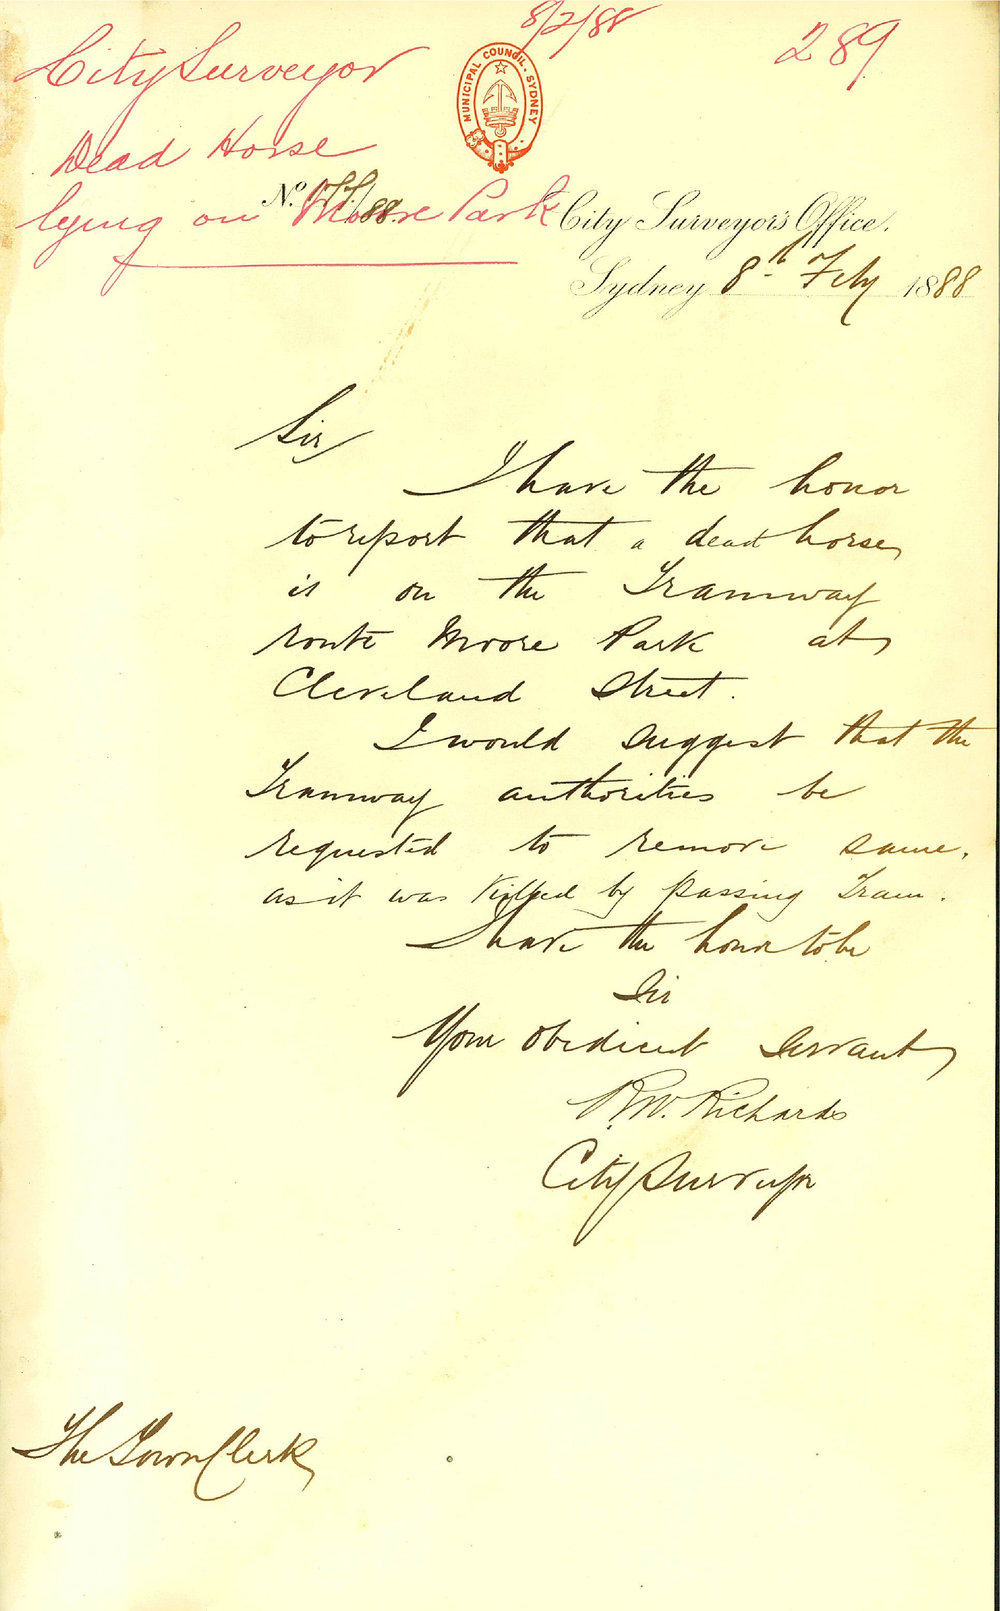 8/2/88
289
City Surveyor
Dead Horse
lying on Moore Park
MUNICIPAL COUNCIL · SYDNEY
No. 88.
City Surveyor's Office.
Sydney 8th Feby 1888
Sir
I have the honor
to report that a dead horse
is on the Tramway
route Moore Park at
Cleveland Street.
I would suggest that the
Tramway authorities be
requested to remove same.
as it was killed by passing Tram.
I have the honor to be
Sir
Your obedient Servant
R.W. Richards
City Surveyor
The Town Clerk